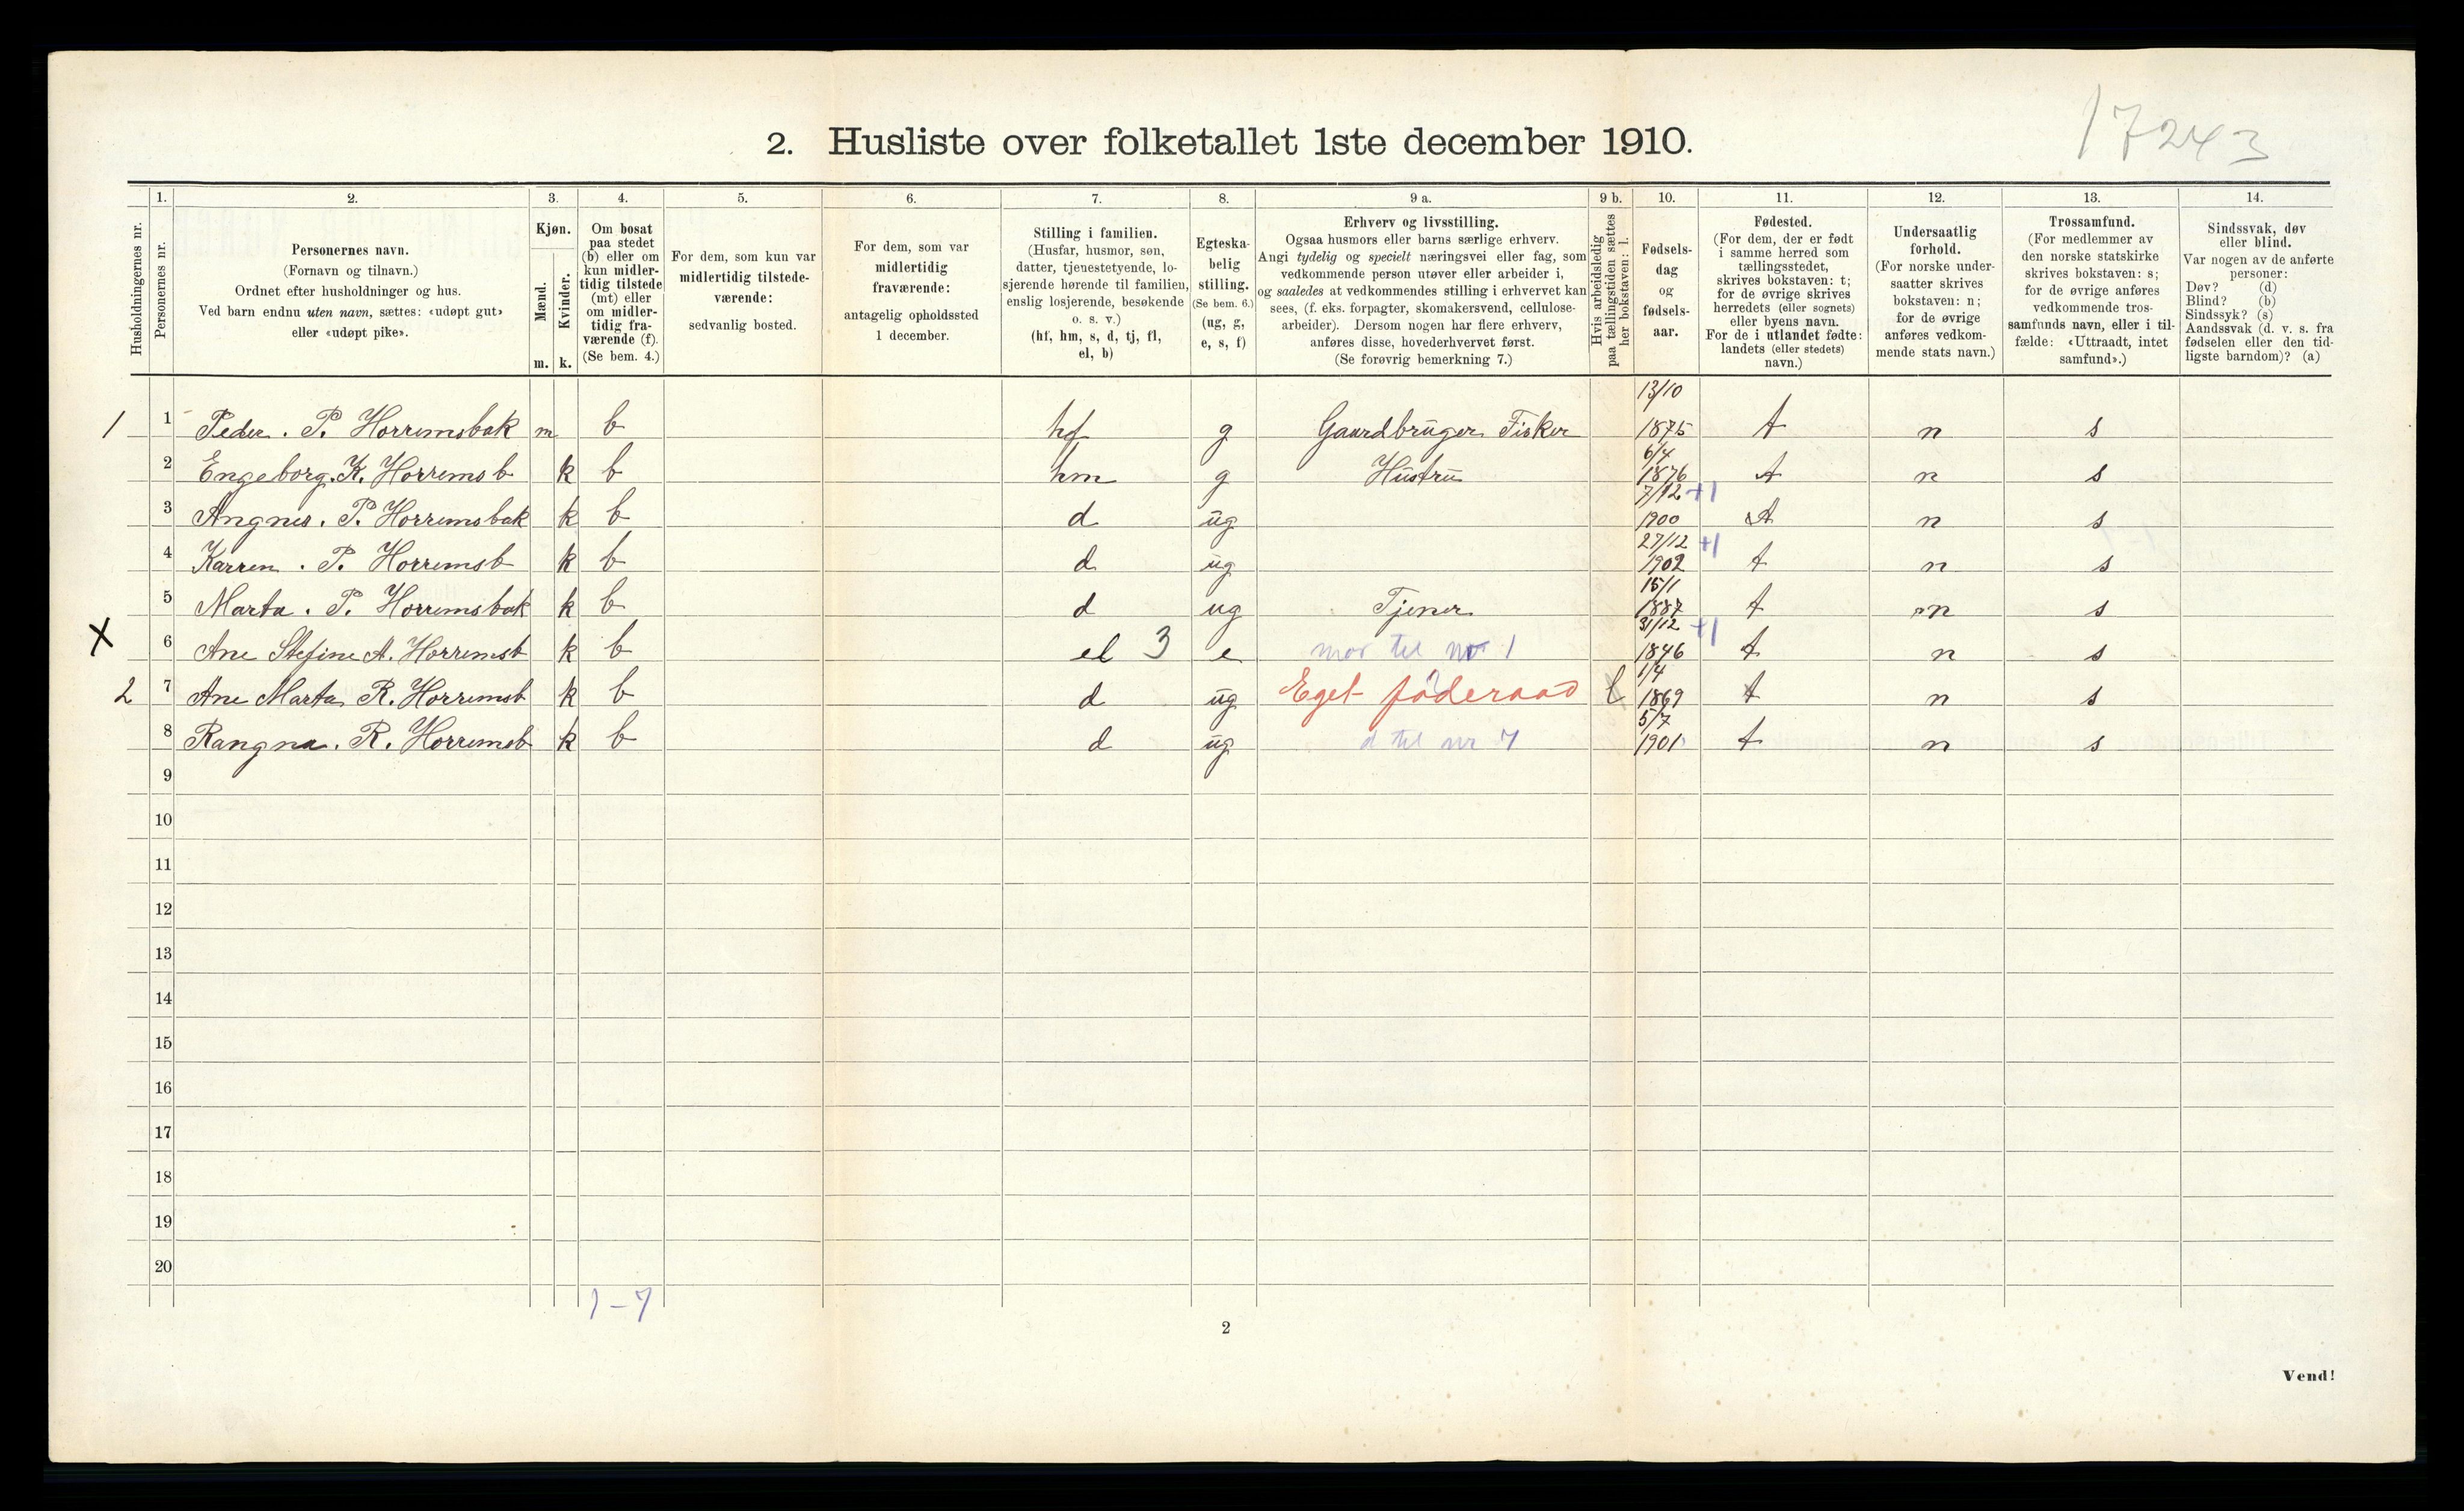 17243
2. Husliste over folketallet 1ste december 1910.
Husholdningernes nr.
1. Personernes nr.
2. Personernes navn.
(Fornavn og tilnavn.)
Ordnet efter husholdninger og hus.
Ved barn endnu uten navn, sættes: «udøpt gut»
eller «udøpt pike».
3. Kjøn.
Mænd. m.
Kvinder. k.
4. Om bosat
paa stedet
(b) eller om
kun midler-
tidig tilstede
(mt) eller
om midler-
tidig fra-
værende (f).
(Se bem. 4.)
5. For dem, som kun var
midlertidig tilstede-
værende:
sedvanlig bosted.
6. For dem, som var
midlertidig
fraværende:
antagelig opholdssted
1 december.
7. Stilling i familien.
(Husfar, husmor, søn,
datter, tjenestetyende, lo-
sjerende hørende til familien,
enslig losjerende, besøkende
o. s. v.)
(hf, hm, s, d, tj, fl,
el, b)
8. Egteska-
belig
stilling.
(Se bem. 6.)
(ug, g,
e, s, f)
9 a. Erhverv og livsstilling.
Ogsaa husmors eller barns særlige erhverv.
Angi tydelig og specielt næringsvei eller fag, som
vedkommende person utøver eller arbeider i,
og saaledes at vedkommendes stilling i erhvervet kan
sees, (f. eks. forpagter, skomakersvend, cellulose-
arbeider). Dersom nogen har flere erhverv,
anføres disse, hovederhvervet først.
(Se forøvrig bemerkning 7.)
9 b. Hvis arbeidsledig
paa tællingstiden sættes
her bokstaven: l.
10. Fødsels-
dag
og
fødsels-
aar.
11. Fødested.
(For dem, der er født
i samme herred som
tællingsstedet,
skrives bokstaven: t;
for de øvrige skrives
herredets (eller sognets)
eller byens navn.
For de i utlandet fødte:
landets (eller stedets)
navn.)
12. Undersaatlig
forhold.
(For norske under-
saatter skrives
bokstaven: n;
for de øvrige
anføres vedkom-
mende stats navn.)
13. Trossamfund.
(For medlemmer av
den norske statskirke
skrives bokstaven: s;
for de øvrige anføres
vedkommende tros-
samfunds navn, eller i til-
fælde: «Uttraadt, intet
samfund».)
14. Sindssvak, døv
eller blind.
Var nogen av de anførte
personer:
Døv? (d)
Blind? (b)
Sindssyk? (s)
Aandssvak (d. v. s. fra
fødselen eller den tid-
ligste barndom)? (a)
1 1 Peder. P. Horremsbak m b hf g Gaardbruger Fisker 13/10 1875 t n s
2 Engeborg. K. Horremsb k b hm g Hustru 6/4 1876 t n s
3 Angnes. P. Horremsbak k b d ug 7/12 +1 1900 t n s
4 Karren. P. Horremsb k b d ug 27/12 +1 1902 t n s
5 Marta. P. Horremsbak k b d ug Tjener 15/1 1887 t n s
X 6 Ane Stefine A. Horremsb k b el 3 e mor til nr 1 31/12 +1 1846 t n s
2 7 Ane Marta R. Horremsb k b d ug Eget føderaad l 1/4 1869 t n s
8 Rangna. R. Horremsb k b d ug d til nr 7 5/7 1901 t n s
9
10
11
12
13
14
15
16
17
18
19
20
1 – 7
2
Vend!